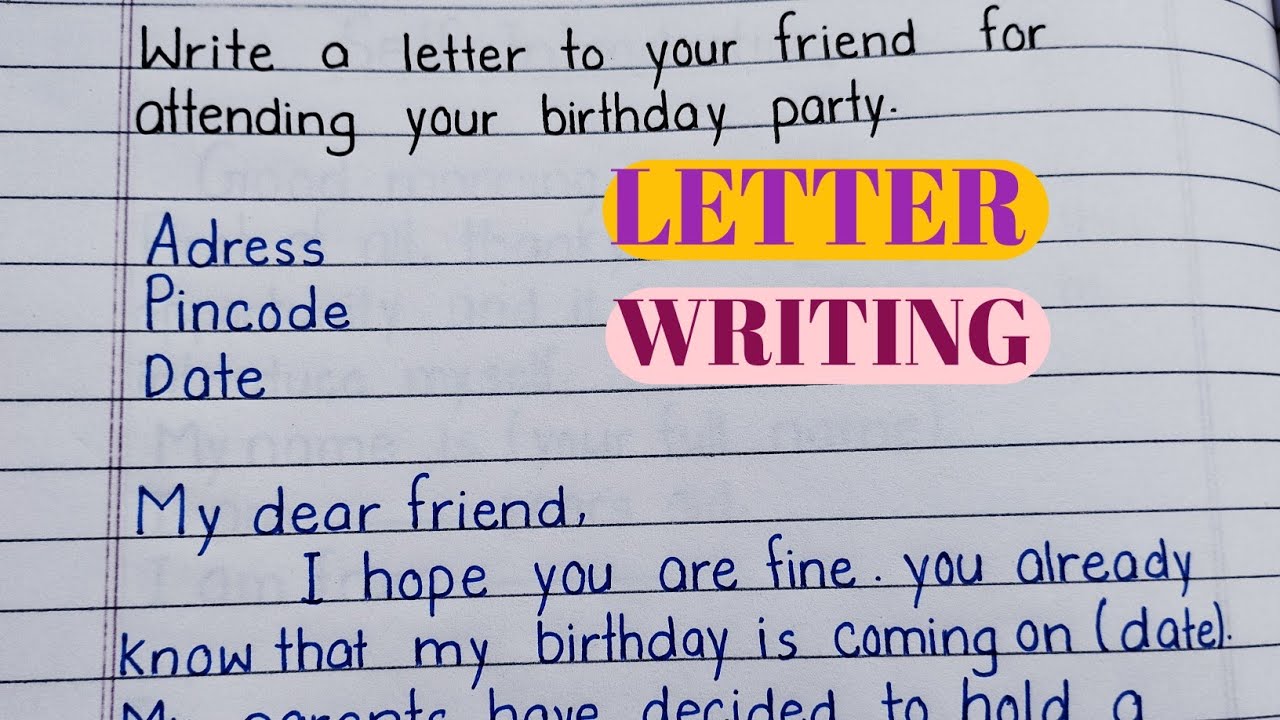 Write a letter to your friend for
attending your birthday party.
LETTER
Adress
WRITING
Pincode
Date
My dear friend,
I hope you are fine. you already
know that my birthday is coming on (date).
My parents have decided to hold a